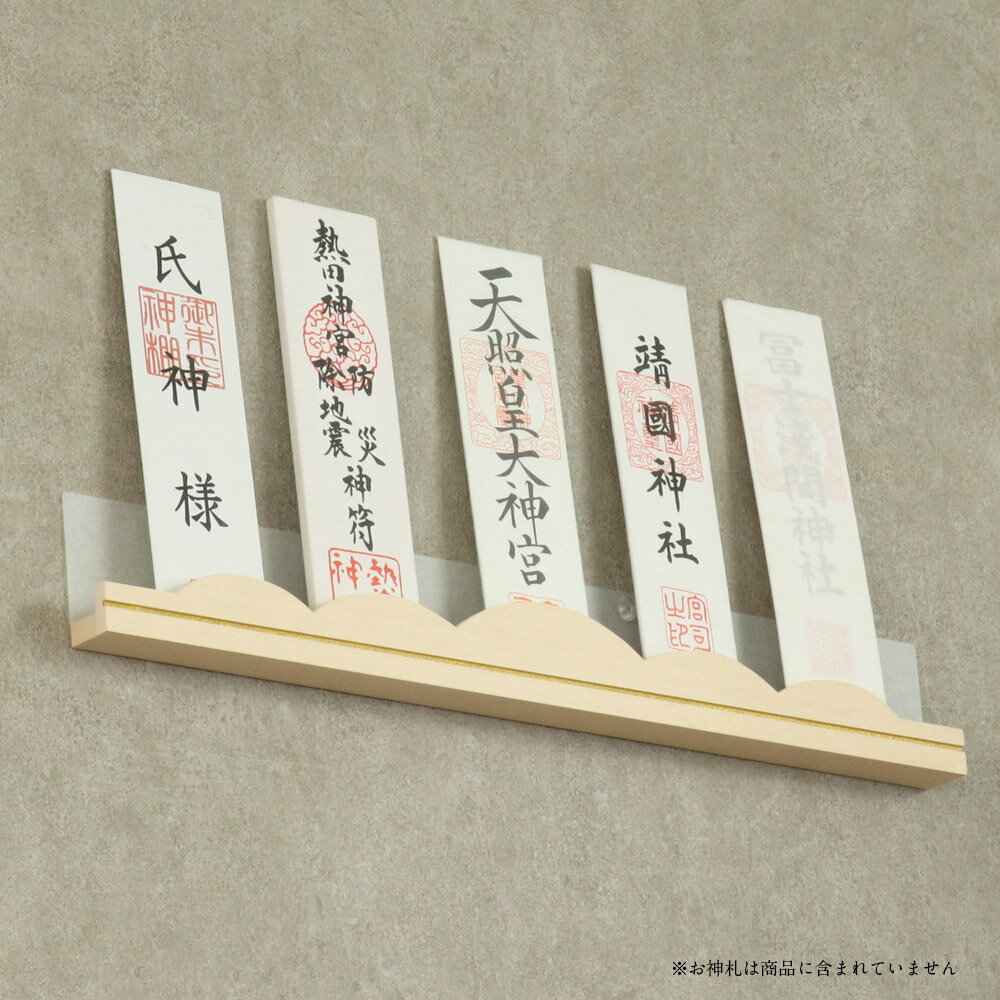 氏神様
熱田神宮防災
除地震神符
天照皇大神宮
靖國神社
宮司之印
冨士浅間神社
※お神札は商品に含まれていません